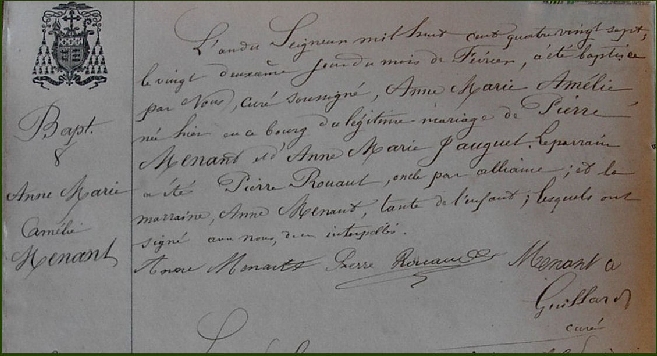 Bapt.
8
Anne Marie
Amélie
Menant
L'an du Seigneur mil huit cent quatre vingt sept,
le vingt deuxième jour du mois de Février, a été baptisée
par Nous, curé soussigné, Anne Marie Amélie
née hier en ce bourg du légitime mariage de Pierre
Menant et d'Anne Marie Jauguet. Le parrain
a été Pierre Rouaut, oncle par alliance; et la
marraine, Anne Menant, tante de l'enfant; lesquels ont
signé avec nous, de ce interpellés.
Menant Pierre Rouaud Menant a
Guillard
curé